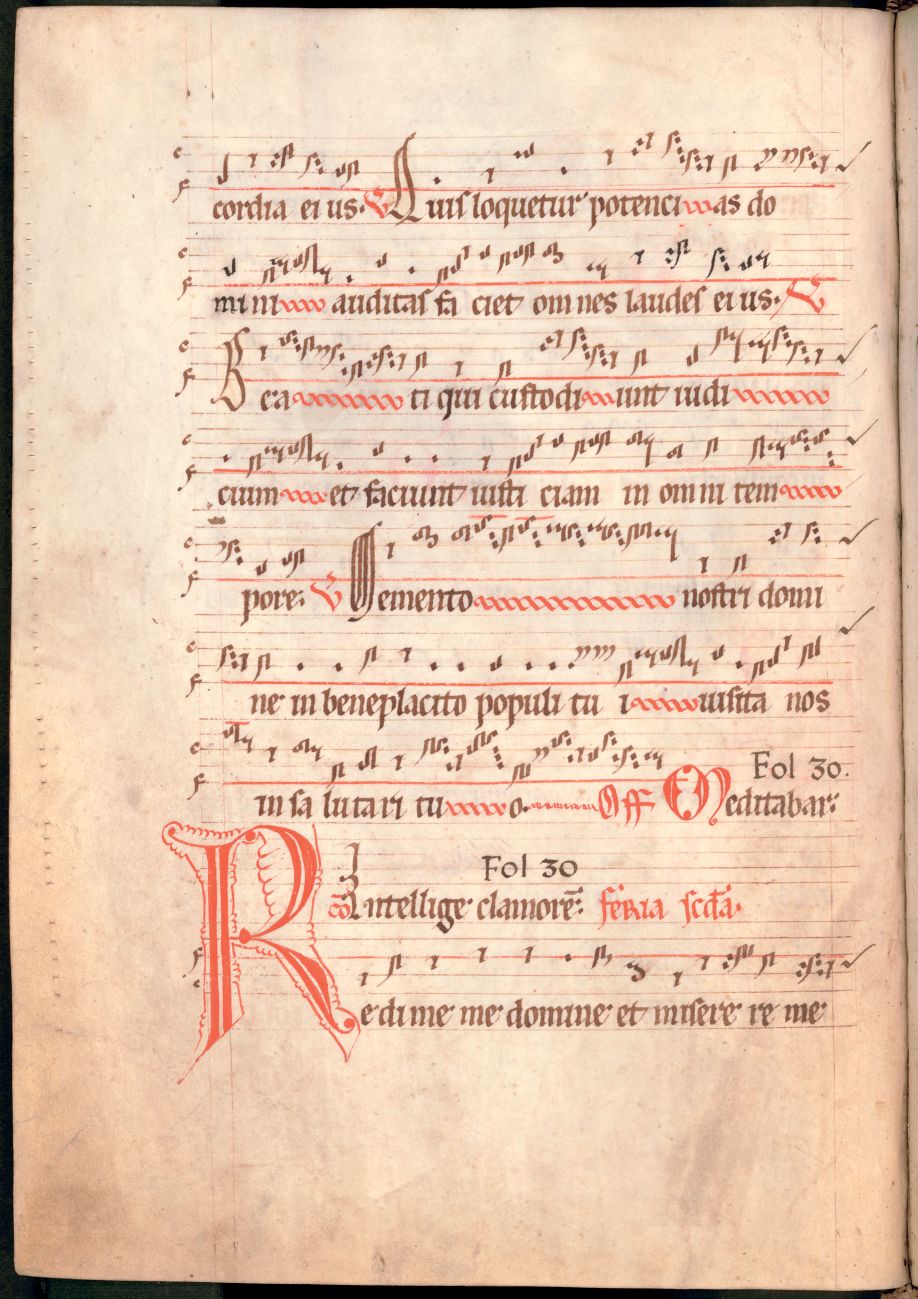 cordia ei us. V Quis loquetur potenci as do
mi ni auditas fa ciet om nes laudes ei us. V
Bea ti qui custodi unt iudi
cium et faciunt iusti ciam in om ni tem
pore. V Memento nostri domi
ne in beneplacito populi tu i uisita nos
in sa lutari tu o. Off Meditabar.
Fol 30.
Fol 30
Co Intellige clamorē. feria scđa.
Redi me me domine et misere re me